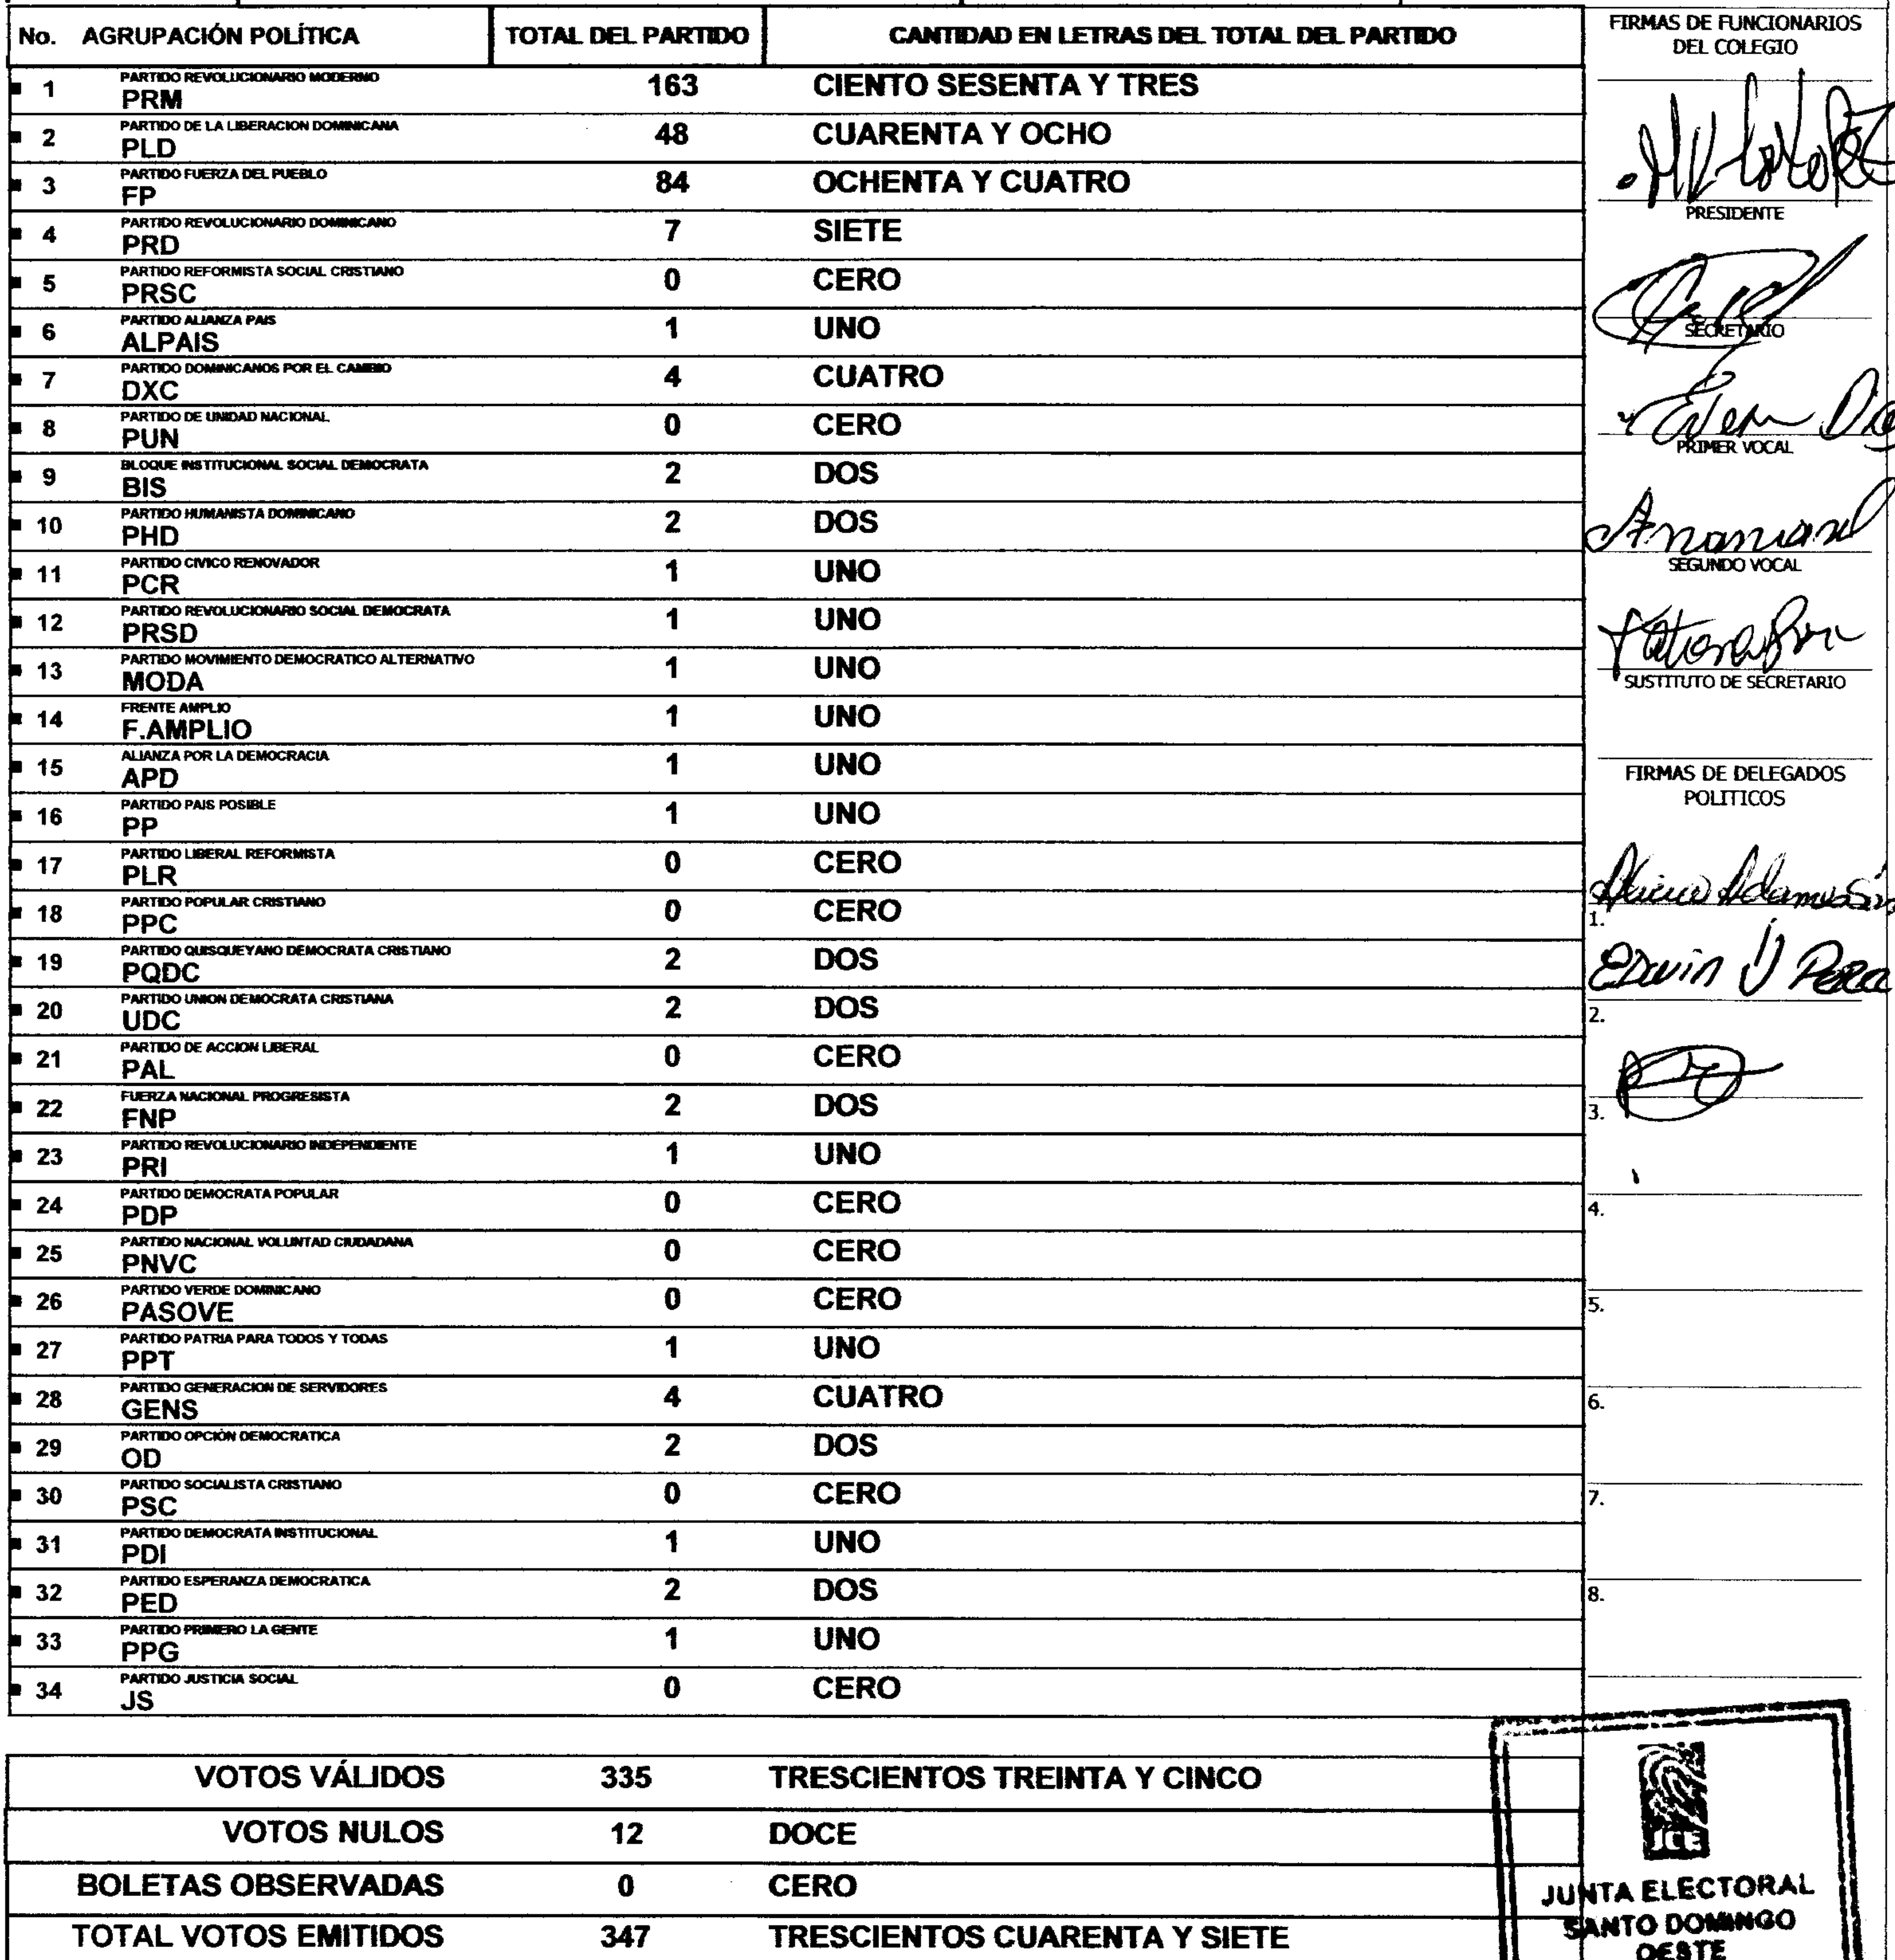 No. AGRUPACIÓN POLÍTICA TOTAL DEL PARTIDO CANTIDAD EN LETRAS DEL TOTAL DEL PARTIDO
PARTIDO REVOLUCIONARIO MODERNO
1 PRM 163 CIENTO SESENTA Y TRES
PARTIDO DE LA LIBERACION DOMINICANA
2 PLD 48 CUARENTA Y OCHO
PARTIDO FUERZA DEL PUEBLO
3 FP 84 OCHENTA Y CUATRO
PARTIDO REVOLUCIONARIO DOMINICANO
4 PRD 7 SIETE
PARTIDO REFORMISTA SOCIAL CRISTIANO
5 PRSC 0 CERO
PARTIDO ALIANZA PAIS
6 ALPAIS 1 UNO
PARTIDO DOMINICANOS POR EL CAMBIO
7 DXC 4 CUATRO
PARTIDO DE UNIDAD NACIONAL
8 PUN 0 CERO
BLOQUE INSTITUCIONAL SOCIAL DEMOCRATA
9 BIS 2 DOS
PARTIDO HUMANISTA DOMINICANO
10 PHD 2 DOS
PARTIDO CIVICO RENOVADOR
11 PCR 1 UNO
PARTIDO REVOLUCIONARIO SOCIAL DEMOCRATA
12 PRSD 1 UNO
PARTIDO MOVIMIENTO DEMOCRATICO ALTERNATIVO
13 MODA 1 UNO
FRENTE AMPLIO
14 F.AMPLIO 1 UNO
ALIANZA POR LA DEMOCRACIA
15 APD 1 UNO
PARTIDO PAIS POSIBLE
16 PP 1 UNO
PARTIDO LIBERAL REFORMISTA
17 PLR 0 CERO
PARTIDO POPULAR CRISTIANO
18 PPC 0 CERO
PARTIDO QUISQUEYANO DEMOCRATA CRISTIANO
19 PQDC 2 DOS
PARTIDO UNION DEMOCRATA CRISTIANA
20 UDC 2 DOS
PARTIDO DE ACCION LIBERAL
21 PAL 0 CERO
FUERZA NACIONAL PROGRESISTA
22 FNP 2 DOS
PARTIDO REVOLUCIONARIO INDEPENDIENTE
23 PRI 1 UNO
PARTIDO DEMOCRATA POPULAR
24 PDP 0 CERO
PARTIDO NACIONAL VOLUNTAD CIUDADANA
25 PNVC 0 CERO
PARTIDO VERDE DOMINICANO
26 PASOVE 0 CERO
PARTIDO PATRIA PARA TODOS Y TODAS
27 PPT 1 UNO
PARTIDO GENERACION DE SERVIDORES
28 GENS 4 CUATRO
PARTIDO OPCIÓN DEMOCRATICA
29 OD 2 DOS
PARTIDO SOCIALISTA CRISTIANO
30 PSC 0 CERO
PARTIDO DEMOCRATA INSTITUCIONAL
31 PDI 1 UNO
PARTIDO ESPERANZA DEMOCRATICA
32 PED 2 DOS
PARTIDO PRIMERO LA GENTE
33 PPG 1 UNO
PARTIDO JUSTICIA SOCIAL
34 JS 0 CERO
VOTOS VÁLIDOS 335 TRESCIENTOS TREINTA Y CINCO
VOTOS NULOS 12 DOCE
BOLETAS OBSERVADAS 0 CERO
TOTAL VOTOS EMITIDOS 347 TRESCIENTOS CUARENTA Y SIETE
FIRMAS DE FUNCIONARIOS
DEL COLEGIO
PRESIDENTE
SECRETARIO
PRIMER VOCAL
SEGUNDO VOCAL
SUSTITUTO DE SECRETARIO
FIRMAS DE DELEGADOS
POLITICOS
1.
Edwin
2.
3.
4.
5.
6.
7.
8.
JCE
JUNTA ELECTORAL
SANTO DOMINGO
OESTE